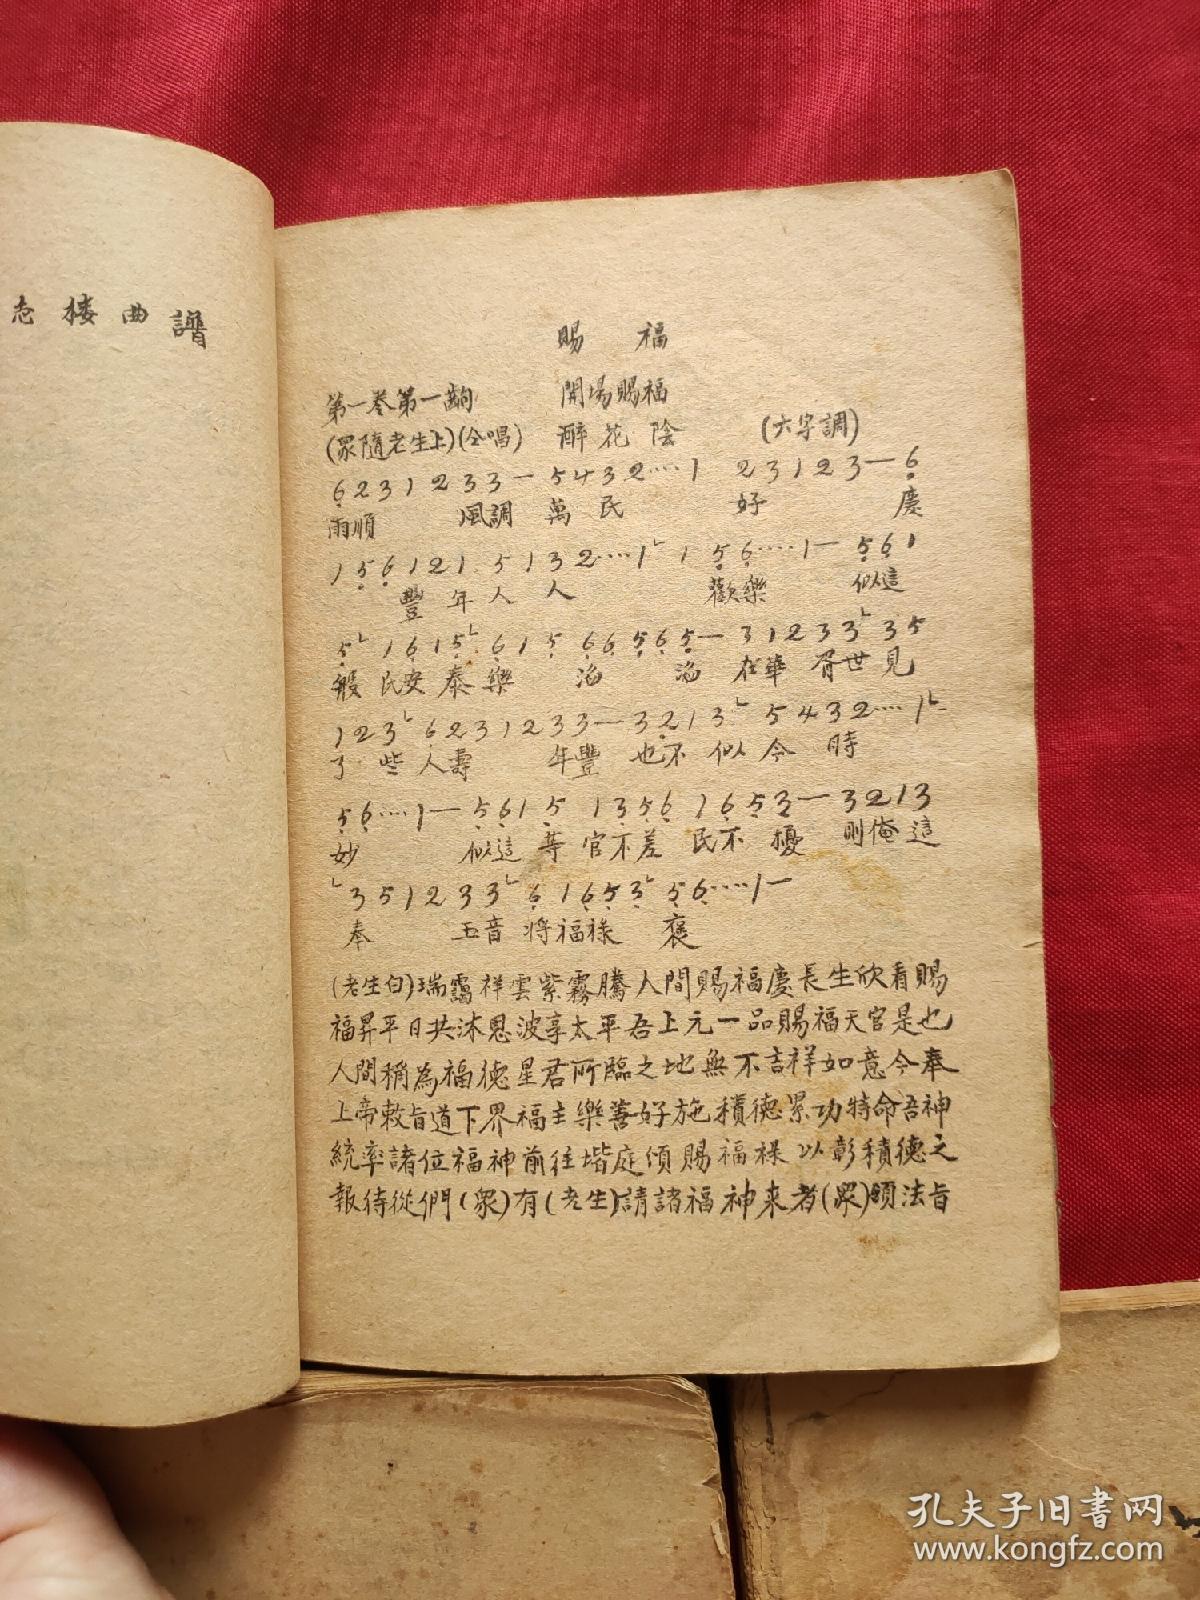 志楼曲譜
賜 福
第一卷第一齣 開場賜福
(眾隨老生上)(仝唱) 醉花陰 (六字調)
6231233一5432····1 23123一6
雨順 風調 萬民 好 慶
156121 5132····1 156····1一561
豐年人人 歡樂 似這
5 1615 615 66565一31233 35
般 民安泰樂 滔 滔 在華胥世見
123 6231233一3213 5432····1
了些人壽 年豐 也不似今 時
56····1一5615 1356 1653一3213
妙 似這等官不差民不擾 則俺這
351233 61653 56····1一
奉 玉音將福祿 褒
(老生白)瑞靄祥雲紫霧騰人間賜福慶長生欣看賜
福昇平日共沐恩波享太平吾上元一品賜福天官是也
人間稱為福德星君所臨之地無不吉祥如意今奉
上帝敕旨道下界福主樂善好施積德累功特命吾神
統率諸位福神前往堦庭傾賜福祿以彰積德之
報待從們(眾)有(老生)請諸福神来者(眾)領法旨
孔夫子旧书网
www.kongfz.com